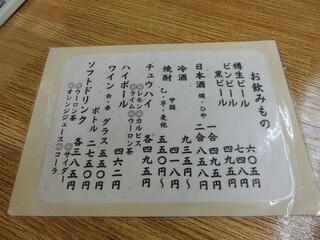 お飲みもの
樽生ビール 六〇五円
ビンビール 七四八円
黒ビール 四九五円
日本酒 燗・ひや 一合 四九五円
二合 八五八円
冷酒 九三五円〜
焼酎 甲類 四一八円
乙・芋・麦他 五五〇円〜
チュウハイ 各四九五円
◎レモン◎カルピス
◎ライム◎ウーロン茶
ハイボール 四六二円
ワイン 白・赤 グラス 五五〇円
ボトル 二七五〇円
ソフトドリンク 各三八五円
◎ウーロン茶 ◎サイダー
◎オレンジジュース◎コーラ